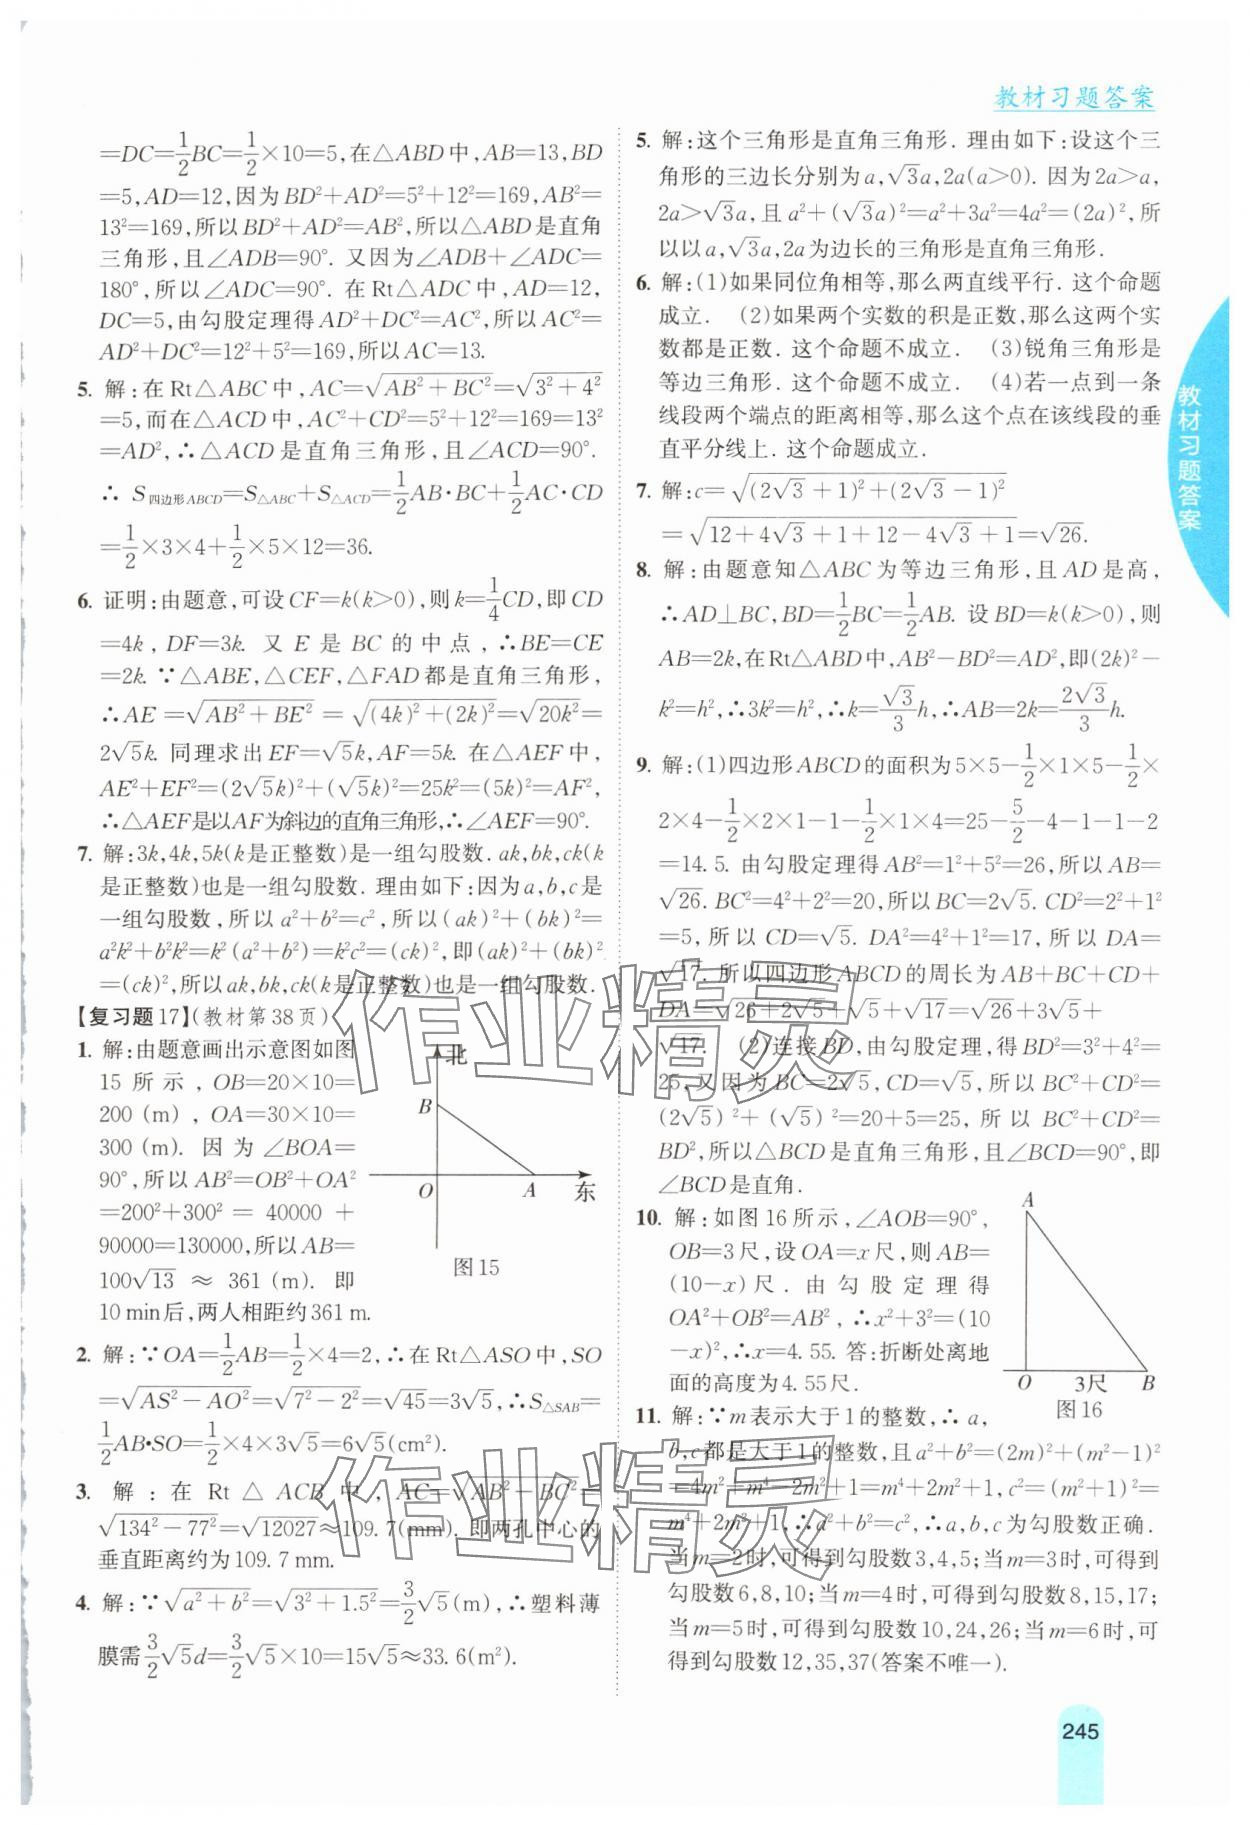 教材习题答案
=DC=$\frac{1}{2}$BC=$\frac{1}{2}$×10=5,在△ABD中,AB=13,BD
=5,AD=12,因为BD²+AD²=5²+12²=169,AB²=
13²=169,所以BD²+AD²=AB²,所以△ABD是直角
三角形,且∠ADB=90°. 又因为∠ADB+∠ADC=
180°,所以∠ADC=90°. 在Rt△ADC中,AD=12,
DC=5,由勾股定理得AD²+DC²=AC²,所以AC²=
AD²+DC²=12²+5²=169,所以AC=13.
5. 解:在Rt△ABC中,AC=$\sqrt{AB^2+BC^2}$=$\sqrt{3^2+4^2}$
=5,而在△ACD中,AC²+CD²=5²+12²=169=13²
=AD²,∴△ACD是直角三角形,且∠ACD=90°.
∴ S四边形ABCD=S△ABC+S△ACD=$\frac{1}{2}$AB·BC+$\frac{1}{2}$AC·CD
=$\frac{1}{2}$×3×4+$\frac{1}{2}$×5×12=36.
6. 证明:由题意,可设CF=k(k>0),则k=$\frac{1}{4}$CD,即CD
=4k,DF=3k. 又E是BC的中点,∴BE=CE
=2k. ∵△ABE,△CEF,△FAD都是直角三角形,
∴AE=$\sqrt{AB^2+BE^2}$=$\sqrt{(4k)^2+(2k)^2}$=$\sqrt{20k^2}$=
2$\sqrt{5}$k. 同理求出EF=$\sqrt{5}$k,AF=5k. 在△AEF中,
AE²+EF²=(2$\sqrt{5}$k)²+($\sqrt{5}$k)²=25k²=(5k)²=AF²,
∴△AEF是以AF为斜边的直角三角形,∴∠AEF=90°.
7. 解:3k,4k,5k(k是正整数)是一组勾股数. ak,bk,ck(k
是正整数)也是一组勾股数. 理由如下:因为a,b,c是
一组勾股数,所以a²+b²=c²,所以(ak)²+(bk)²=
a²k²+b²k²=k²(a²+b²)=k²c²=(ck)²,即(ak)²+(bk)²
=(ck)²,所以ak,bk,ck(k是正整数)也是一组勾股数.
【复习题17】(教材第38页)
1. 解:由题意画出示意图如图
15所示,OB=20×10=
200(m),OA=30×10=
300(m). 因为∠BOA=
90°,所以AB²=OB²+OA²
=200²+300²=40000+
90000=130000,所以AB=
100$\sqrt{13}$≈361(m). 即
10 min后,两人相距约361 m.
北
B
O
A
东
图15
2. 解:∵OA=$\frac{1}{2}$AB=$\frac{1}{2}$×4=2,∴在Rt△ASO中,SO
=$\sqrt{AS^2-AO^2}$=$\sqrt{7^2-2^2}$=$\sqrt{45}$=3$\sqrt{5}$,∴S△SAB=
$\frac{1}{2}$AB·SO=$\frac{1}{2}$×4×3$\sqrt{5}$=6$\sqrt{5}$(cm²).
3. 解:在Rt△ACB中,AC=$\sqrt{AB^2-BC^2}$=
$\sqrt{134^2-77^2}$=$\sqrt{12027}$≈109.7(mm). 即两孔中心的
垂直距离约为109.7 mm.
4. 解:∵$\sqrt{a^2+b^2}$=$\sqrt{3^2+1.5^2}$=$\frac{3}{2}$$\sqrt{5}$(m),∴塑料薄
膜需$\frac{3}{2}$$\sqrt{5}$d=$\frac{3}{2}$$\sqrt{5}$×10=15$\sqrt{5}$≈33.6(m²).
5. 解:这个三角形是直角三角形. 理由如下:设这个三
角形的三边长分别为a,$\sqrt{3}$a,2a(a>0). 因为2a>a,
2a>$\sqrt{3}$a,且a²+($\sqrt{3}$a)²=a²+3a²=4a²=(2a)²,所
以以a,$\sqrt{3}$a,2a为边长的三角形是直角三角形.
6. 解:(1)如果同位角相等,那么两直线平行. 这个命题
成立. (2)如果两个实数的积是正数,那么这两个实
数都是正数. 这个命题不成立. (3)锐角三角形是
等边三角形. 这个命题不成立. (4)若一点到一条
线段两个端点的距离相等,那么这个点在该线段的垂
直平分线上. 这个命题成立.
7. 解:c=$\sqrt{(2\sqrt{3}+1)^2+(2\sqrt{3}-1)^2}$
=$\sqrt{12+4\sqrt{3}+1+12-4\sqrt{3}+1}$=$\sqrt{26}$.
8. 解:由题意知△ABC为等边三角形,且AD是高,
∴AD⊥BC,BD=$\frac{1}{2}$BC=$\frac{1}{2}$AB. 设BD=k(k>0),则
AB=2k,在Rt△ABD中,AB²−BD²=AD²,即(2k)²−
k²=h²,∴3k²=h²,∴k=$\frac{\sqrt{3}}{3}$h,∴AB=2k=$\frac{2\sqrt{3}}{3}$h.
9. 解:(1)四边形ABCD的面积为5×5−$\frac{1}{2}$×1×5−$\frac{1}{2}$×
2×4−$\frac{1}{2}$×2×1−1−$\frac{1}{2}$×1×4=25−$\frac{5}{2}$−4−1−1−2
=14.5. 由勾股定理得AB²=1²+5²=26,所以AB=
$\sqrt{26}$. BC²=4²+2²=20,所以BC=2$\sqrt{5}$. CD²=2²+1²
=5,所以CD=$\sqrt{5}$. DA²=4²+1²=17,所以DA=
$\sqrt{17}$. 所以四边形ABCD的周长为AB+BC+CD+
DA=$\sqrt{26}$+2$\sqrt{5}$+$\sqrt{5}$+$\sqrt{17}$=$\sqrt{26}$+3$\sqrt{5}$+
$\sqrt{17}$. (2)连接BD,由勾股定理,得BD²=3²+4²=
25,又因为BC=2$\sqrt{5}$,CD=$\sqrt{5}$,所以BC²+CD²=
(2$\sqrt{5}$)²+($\sqrt{5}$)²=20+5=25,所以BC²+CD²=
BD²,所以△BCD是直角三角形,且∠BCD=90°,即
∠BCD是直角.
10. 解:如图16所示,∠AOB=90°,
OB=3尺,设OA=x尺,则AB=
(10−x)尺. 由勾股定理得
OA²+OB²=AB²,∴x²+3²=(10
−x)²,∴x=4.55. 答:折断处离地
面的高度为4.55尺.
A
O
3尺
B
图16
11. 解:∵m表示大于1的整数,∴a,
b,c都是大于1的整数,且a²+b²=(2m)²+(m²−1)²
=4m²+m⁴−2m²+1=m⁴+2m²+1,c²=(m²+1)²=
m⁴+2m²+1,∴a²+b²=c²,∴a,b,c为勾股数正确.
当m=2时,可得到勾股数3,4,5;当m=3时,可得到
勾股数6,8,10;当m=4时,可得到勾股数8,15,17;
当m=5时,可得到勾股数10,24,26;当m=6时,可
得到勾股数12,35,37(答案不唯一).
教材习题答案
245
作业精灵
作业精灵